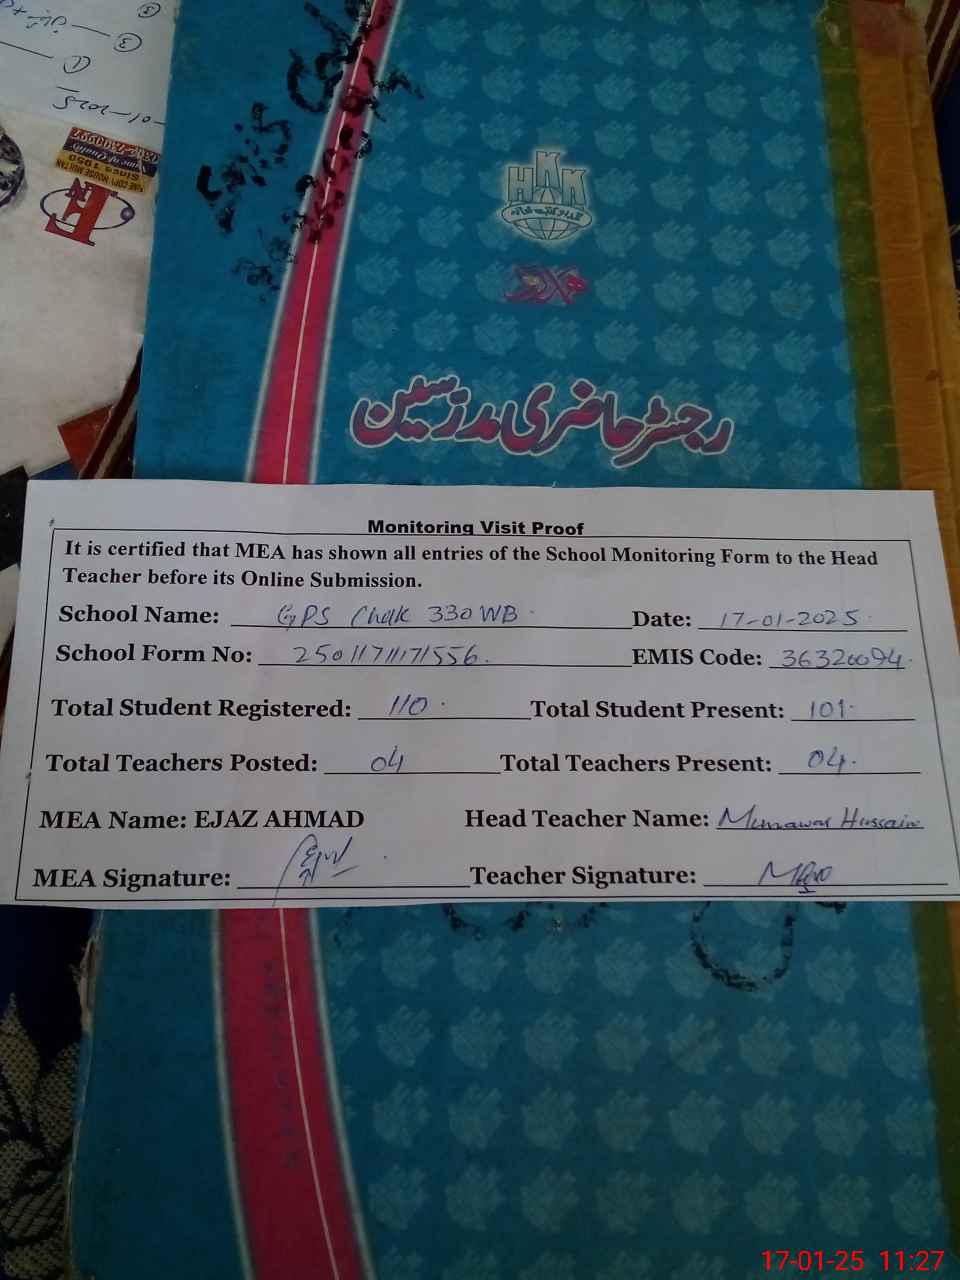 01-2025
③
①
SINCE 1950
HKK
رجسٹر حاضری مدرسین
Monitoring Visit Proof
It is certified that MEA has shown all entries of the School Monitoring Form to the Head
Teacher before its Online Submission.
School Name: GPS Chak 330 WB Date: 17-01-2025
School Form No: EMIS Code: 36320094
Total Student Registered: 110 Total Student Present: 101
Total Teachers Posted: 04 Total Teachers Present: 04
MEA Name: EJAZ AHMAD Head Teacher Name: Munawar Hussain
MEA Signature: Teacher Signature:
17-01-25 11:27